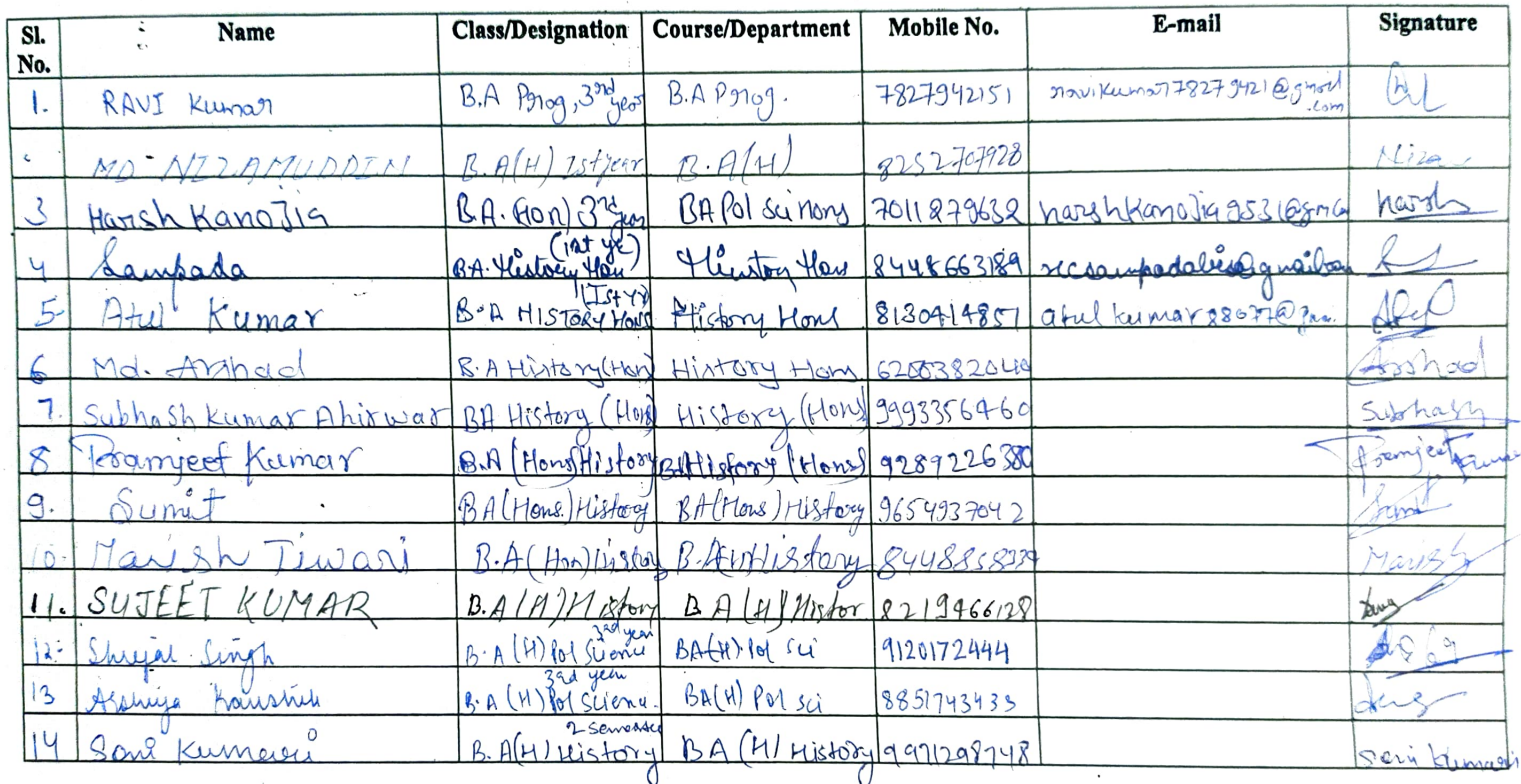 Sl. No. Name Class/Designation Course/Department Mobile No. E-mail Signature
1. RAVI Kumar B.A Prog, 3rd year B.A Prog. 7827942151 ravikumar778279421@gmail.com
MD- NIZAMUDDIN B.A(H) Ist year B.A(H) 8252707928 Niza
3 Harsh KanoJia B.A. (Hon) 3rd year BA Pol Sci Hons 7011879632 harshkanoJia9531@gmai harsh
4 Sampada B.A. History Hon (1st ye) History Hon 8448663189
5 Atul Kumar B.A HISTORY HONS (Ist yr) History Hons 8130414851 atul kumar88077@gmai. Atul
6 Md. Arshad B.A History(Hon) History Hons 6200382040 Arshad
7. Subhash Kumar Ahirwar BA History (Hons) History (Hons) 9993356460 Subhash
8 Pramjeet Kumar B.A (Hons) History BA History (Hons) 9289226380 Pramjeet Kumar
9. Sumit BA(Hons.) History BA(Hons) History 9654937042 Sumit
10. Manish Tiwari B.A (Hon) History B.A(H) History 8448858339 Manish
11. SUJEET KUMAR B.A (H) History B.A (H) Histor 8219466128
12. Shrejal Singh B.A (H) Pol Science 3rd year BA(H) Pol sci 9120172444
13 Arshiya Kaushik B.A (H) Pol Science. 3rd year BA(H) Pol sci 8851743433
14 Soni Kumari B.A(H) History 2 semester BA (H) History 9971298748 Soni kumari